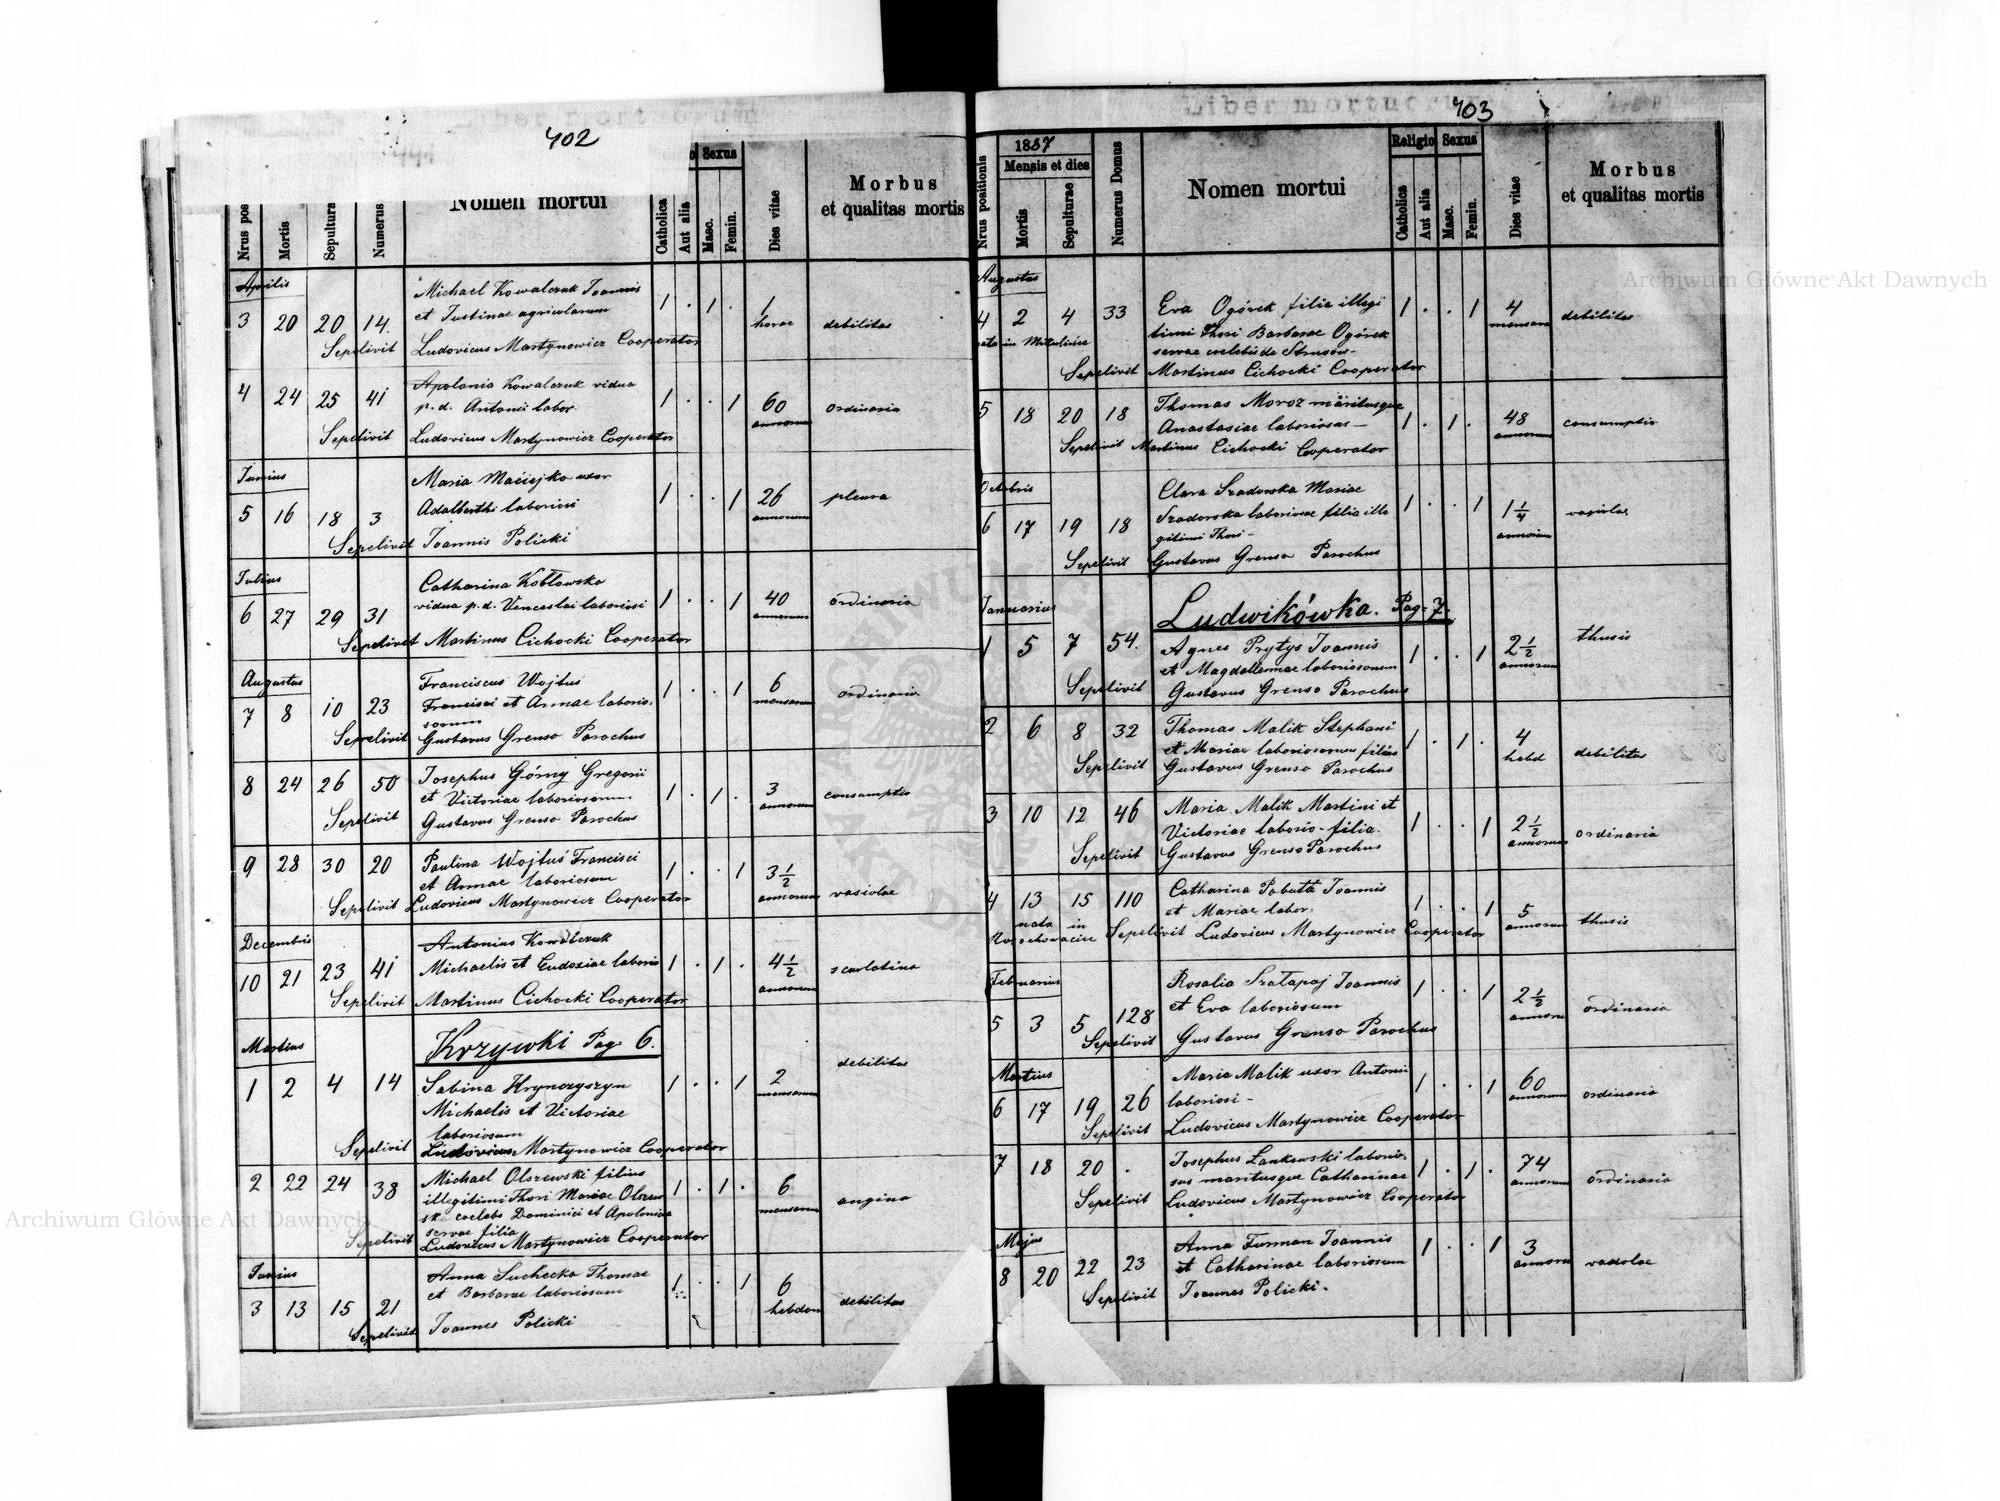 402
Nrus pos
Mortis
Sepultura
Numerus
Nomen mortui
Catholica
Aut alia
Sexus
Masc.
Femin.
Dies vitae
Morbus
et qualitas mortis
Aprilis
Michael Kowalczuk Joannis
et Justinae agricolarum
3 20 20 14. 1 . 1 . 1 horae debilitas
Sepelivit Ludovicus Martynowicz Cooperator
Apolonia Kowalczuk vidua
4 24 25 41 p. d. Antonii labor. 1 . . 1 60 annorum ordinaria
Sepelivit Ludovicus Martynowicz Cooperator
Junius
Maria Maciejko uxor
5 16 18 3 Adalberthi laboriosi 1 . . 1 26 annorum pleura
Sepelivit Joannis Policki
Julius
Catharina Kobłowska
6 27 29 31 vidua p. d. Venceslai laboriosi 1 . . 1 40 annorum ordinaria
Sepelivit Martinus Cichocki Cooperator
Augustus
Franciscus Wojtus
7 8 10 23 Francisci et Annae laborio. 1 . . 1 6 mensorum ordinaria
sorum
Sepelivit Gustavus Grenso Parochus
8 24 26 50 Josephus Górny Gregorii
et Victoriae laboriosorum 1 . 1 . 3 annorum consumptio
Sepelivit Gustavus Grenso Parochus
9 28 30 20 Paulina Wojtuś Francisci
et Annae laboriosum 1 . . 1 3 1/2 annorum vasiolae
Sepelivit Ludovicus Martynowicz Cooperator
Decembris
Antonius Kowalczuk
10 21 23 41 Michaelis et Eudoxiae laborio 1 . 1 . 4 1/2 annorum scarlatina
Sepelivit Martinus Cichocki Cooperator
Krzywki Pag. 6.
Martius
1 2 4 14 Sabina Hrynczyszyn 1 . . 1 2 mensorum debilitas
Michaelis et Victoriae
laboriosum
Sepelivit Ludovicus Martynowicz Cooperator
Michael Olszewski filius
2 22 24 38 illegitimi Thori Mariae Olszew 1 . 1 . 6 mensorum angina
ska coelebs Dominici et Apoloniae
servae filia
Sepelivit Ludovicus Martynowicz Cooperator
Junius
Anna Suchecka Thomae
et Barbarae laboriosum 1 . . 1 6 hebdom debilitas
3 13 15 21
Sepelivit Joannes Policki
Liber mortuorum
403
Nrus positionis
1887
Mensis et dies
Mortis
Sepulturae
Numerus Domus
Nomen mortui
Religio
Catholica
Aut alia
Sexus
Masc.
Femin.
Dies vitae
Morbus
et qualitas mortis
Augustus
4 2 4 33 Eva Ogórek filia illegi 1 . . 1 4 mensorum debilitas
nata in Mikulińce timi Thori Barbarae Ogórek
servae coelebis de Strusów-
Sepelivit Martinus Cichocki Cooperator
5 18 20 18 Thomas Moroz maritusque
Anastasiae laboriosus— 1 . 1 . 48 annorum consumptio
Sepelivit Martinus Cichocki Cooperator
Octobris
Clara Szadorska Mariae
6 17 19 18 Szadorska laboriosae filia ille 1 . . 1 1 1/4 annorum
gitimi Thori-
Sepelivit Gustavus Grenso Parochus
Ludwikówka. Pag. 7.
Januarius
1 5 7 54. Agnes Prytys Joannis 1 . . 1 2 1/2 annorum thusis
et Magdalennae laboriosorum
Sepelivit Gustavus Grenso Parochus
2 6 8 32 Thomas Malik Stephani
et Mariae laboriosorum filius 1 . 1 . 4 hebd debilitas
Sepelivit Gustavus Grenso Parochus
3 10 12 46 Maria Malik Martini et
Victoriae laborio-filia. 1 . . 1 2 1/2 annorum ordinaria
Sepelivit Gustavus Grenso Parochus
Catharina Pabuta Joannis
4 13 15 110 et Mariae labor. 1 . . 1 5 annorum thusis
nata in
Sepelivit Ludovicus Martynowicz Cooperator
Februarius
Rosalia Szatapaj Joannis
et Eva laboriosum 1 . . 1 2 1/2 annoru ordinaria
5 3 5 128
Sepelivit Gustavus Grenso Parochus
Martius
Maria Malik uxor Antonii
6 17 19 26 laboriosi- 1 . . 1 60 annorum ordinaria
Sepelivit Ludovicus Martynowicz Cooperator
7 18 20 . Josephus Łankowski laborio
sus maritusque Catharinae 1 . 1 . 74 annorum ordinaria
Sepelivit Ludovicus Martynowicz Cooperator
Majus
Anna Furman Joannis
8 20 22 23 et Catharinae laboriosum 1 . . 1 3 annoru vadolae
Sepelivit Joannes Policki.
Archiwum Główne Akt Dawnych
Archiwum Główne Akt Dawnych